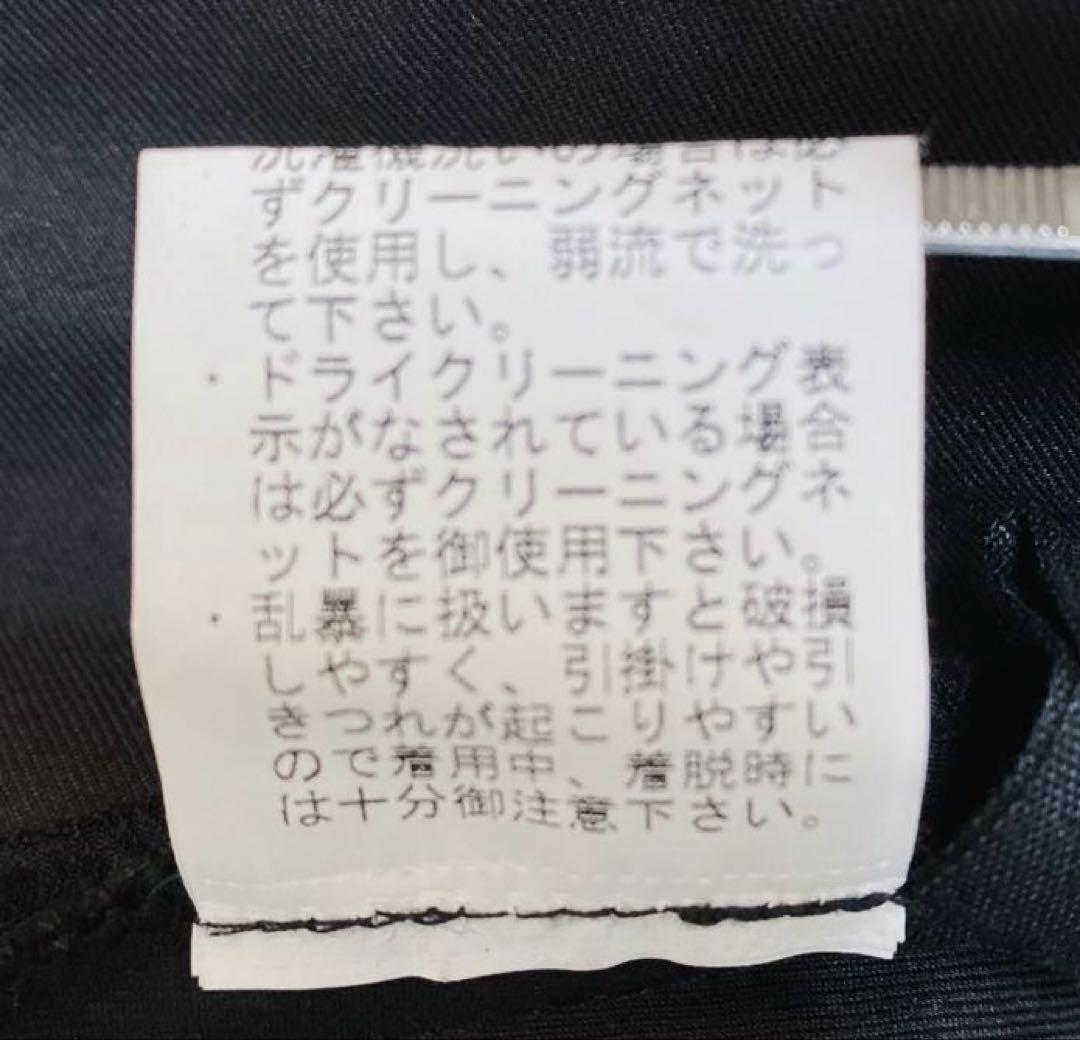 洗濯機洗いの場合は必
ずクリーニングネット
を使用し、弱流で洗っ
て下さい。
・ドライクリーニング表
示がなされている場合
は必ずクリーニングネ
ットを御使用下さい。
・乱暴に扱いますと破損
しやすく、引掛けや引
きつれが起こりやすい
ので着用中、着脱時に
は十分御注意下さい。